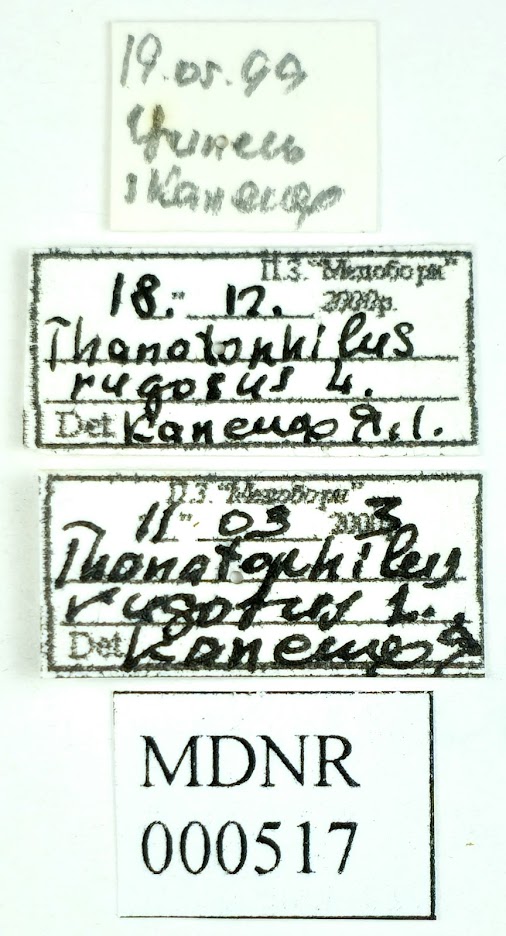 19.05.99
Ципель
з Капелюх
П.З. "Медобори"
18." 12. 2000р.
Thanatophilus
rugosus L.
Det. Капелюх Я.І.
П.З. "Медобори"
11" 03 2003
Thanatophilus
rugosus L.
Det. Капелюх Я
MDNR
000517